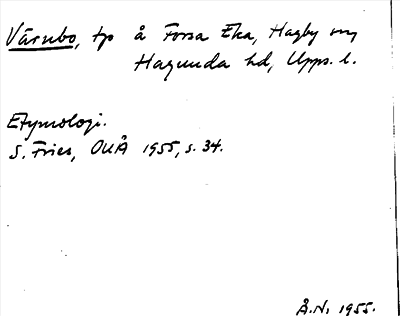 Värnbo, tp å Forsa Eka, Hagby sn
Hagunda hd, Upps. l.
Etymologi.
S. Fries, OUÅ 1955, s. 34.
Å.N. 1955.